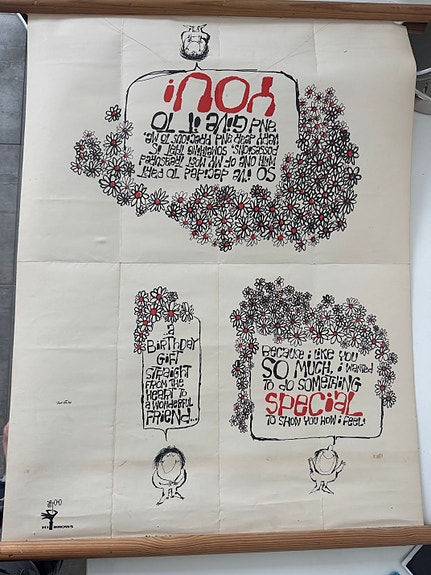 ...a
BiRTHDAY
GiFT
STRAiGHT
FROM THE
HEART TO
a WONDERFUL
FRiEND...
BECAUSE i LiKE YOU
SO MUCH, i WANTED
TO DO SOMETHiNG
SPECiaL
TO SHOW YOU HOW i FEEL!
SO i'VE DECiDED TO PART
WiTH ONE OF MY MOST TREASURED
POSSESSiONS, SOMETHiNG THAT iS
VERY DEAR AND PRECiOUS TO ME,
AND GiVE iT TO
YOU!